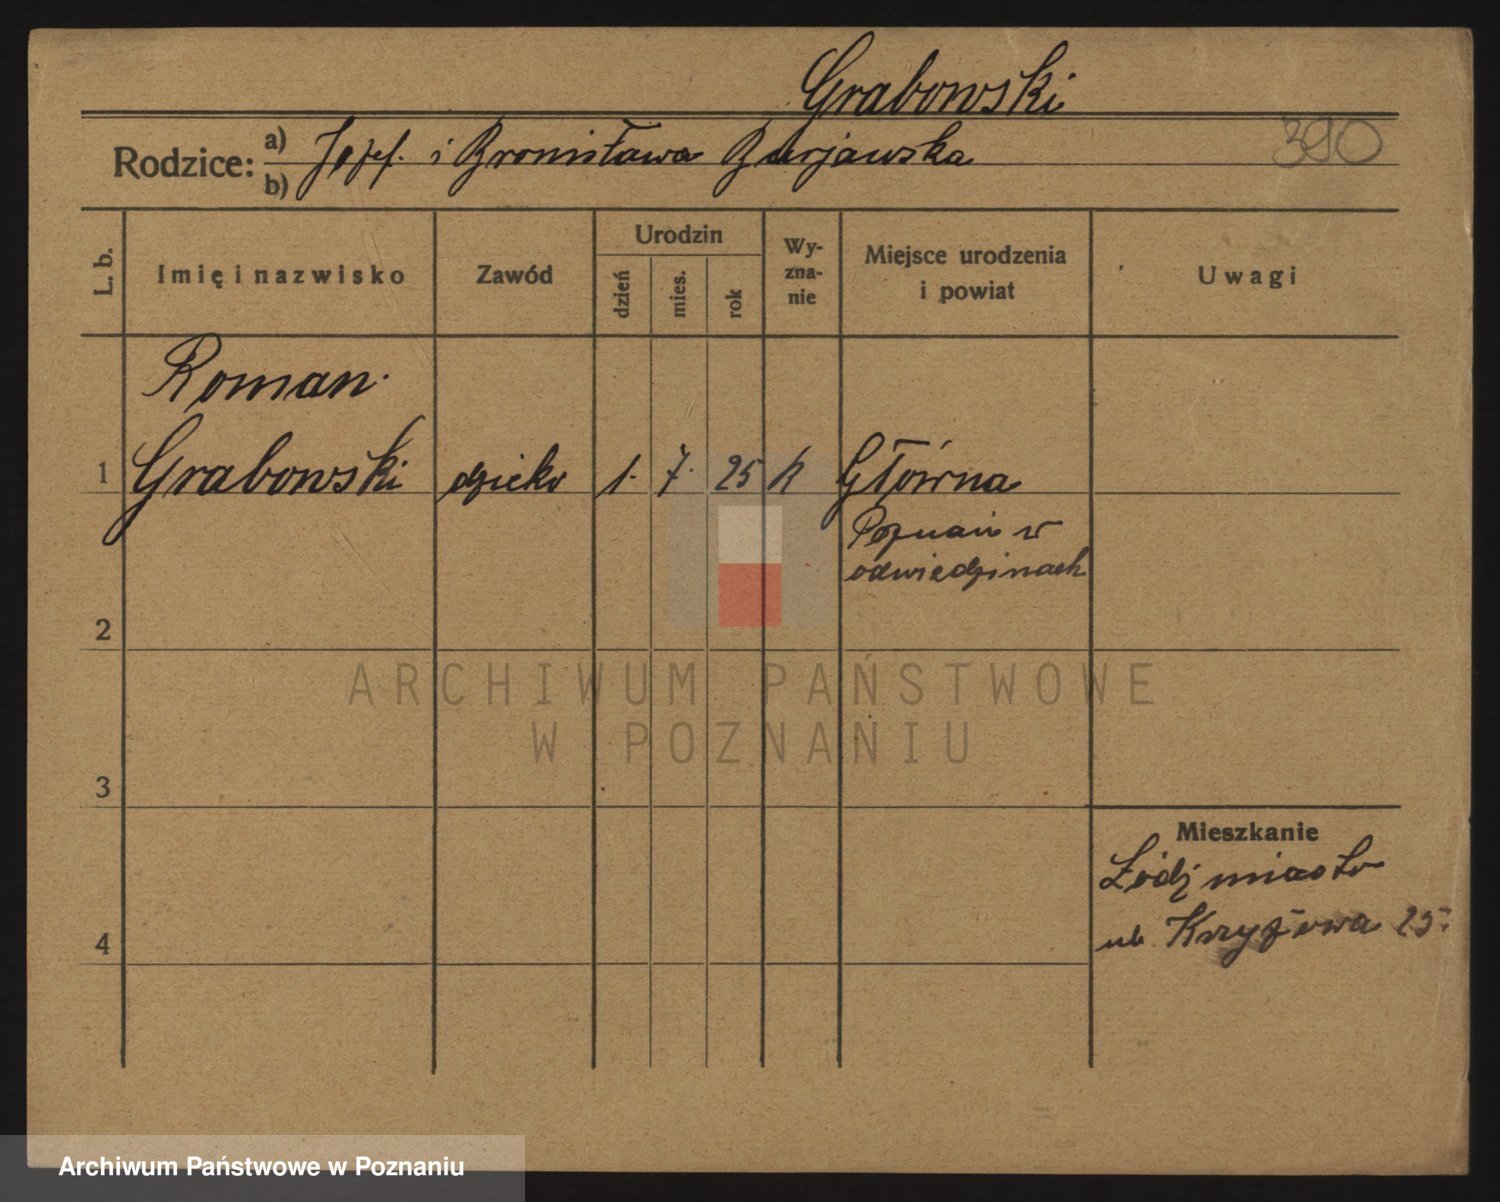 Grabowski
390
Rodzice: a) Józef. i Bronisława Burjawska
b)
L. b.
Imię i nazwisko
Zawód
Urodzin
dzień
mies.
rok
Wy-
zna-
nie
Miejsce urodzenia
i powiat
Uwagi
Roman.
1 Grabowski dziecko 1. 7. 25 k Główna
Poznań w
odwiedzinach
2
ARCHIWUM PAŃSTWOWE
W POZNANIU
3
Mieszkanie
Łódź miasto
4
ul. Krzyżowa 25.
Archiwum Państwowe w Poznaniu